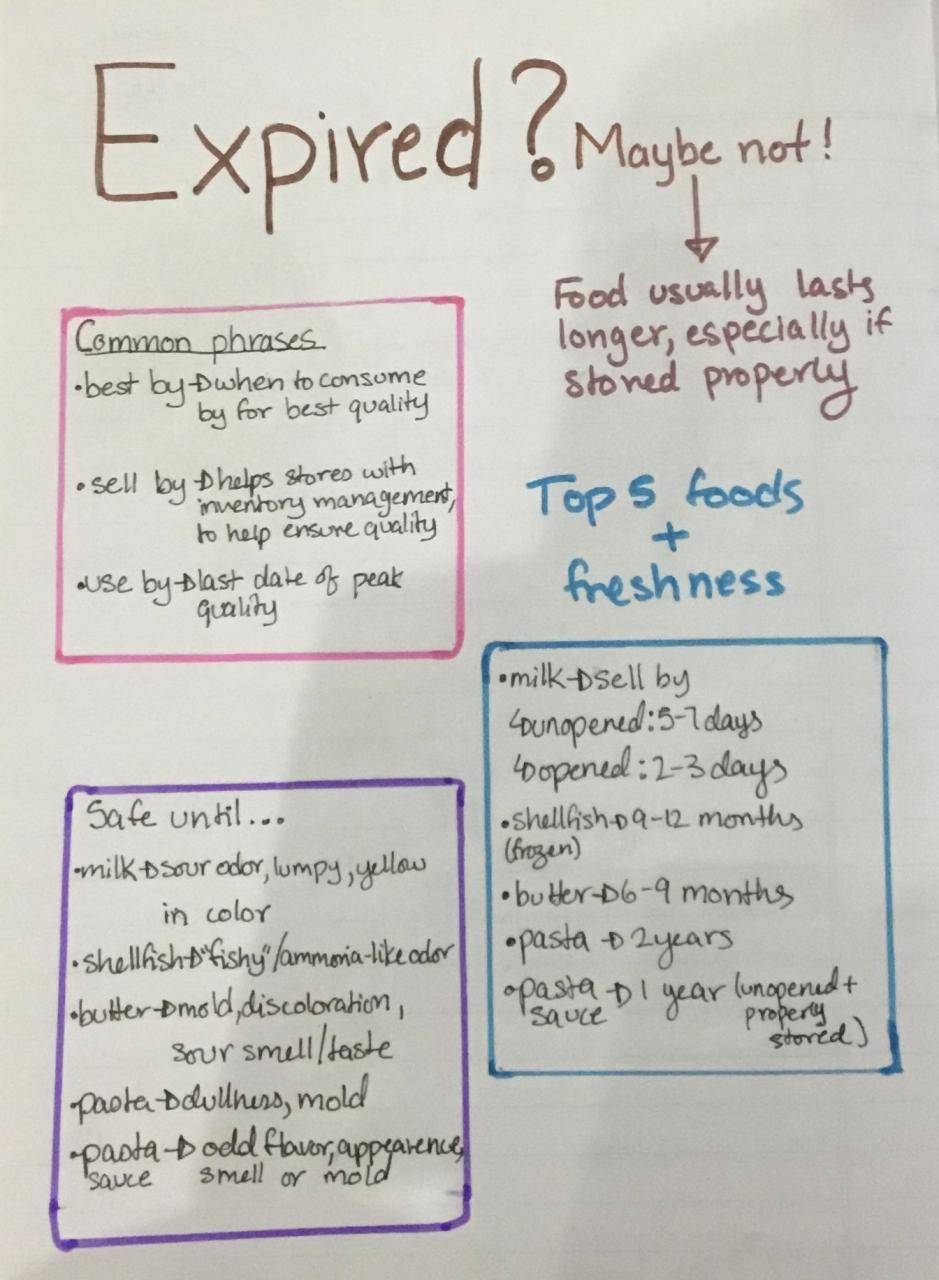 Expired? Maybe not!
Food usually lasts
longer, especially if
stored properly
Common phrases
•best by→when to consume
by for best quality
•sell by→helps stores with
inventory management,
to help ensure quality
•use by→last date of peak
quality
Top 5 foods
+
freshness
•milk→sell by
↳unopened:5-7 days
↳opened:2-3 days
•shellfish→9-12 months
(frozen)
•butter→6-9 months
•pasta→2years
•pasta→1 year (unopened +
sauce properly
stored)
Safe until...
•milk→sour odor, lumpy, yellow
in color
•shellfish→"fishy"/ammonia-like odor
•butter→mold, discoloration,
sour smell/taste
•pasta→dullness, mold
•pasta→odd flavor, appearence,
sauce smell or mold